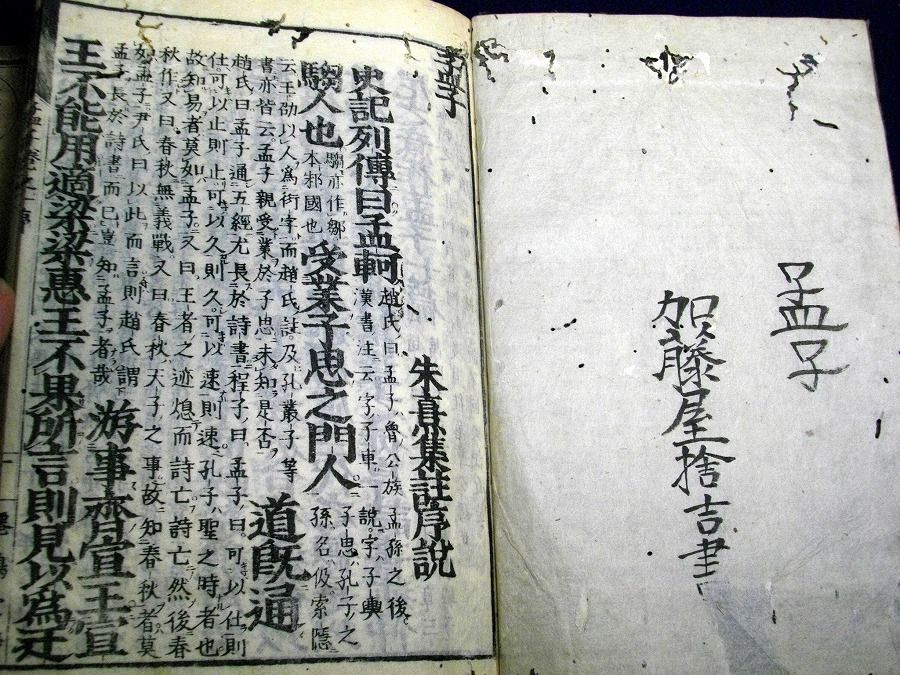 孟子
加藤屋捨吉書
孟子
朱熹集註序說
史記列傳曰孟軻
趙氏曰孟子魯公族孟孫之後
漢書注云字子車一說字子輿
騶人也
騶亦作鄒
本邾國也
受業子思之門人
子思孔子之
孫名伋索隱
云王劭以人爲衍字而趙氏註及孔叢子等
書亦皆云孟子親受業於子思未知是否
道既通
趙氏曰孟子通五經尤長於詩書程子曰孟子曰可以仕則
仕可以止則止可以久則久可以速則速孔子聖之時者也
故知易者莫如孟子又曰王者之迹熄而詩亡詩亡然後春
秋作又曰春秋無義戰又曰春秋天子之事故知春秋者莫
如孟子尹氏曰以此而言則趙氏謂
孟子長於詩書而已豈知孟子者哉
游事齊宣王宣
王不能用適梁梁惠王不果所言則見以爲迂